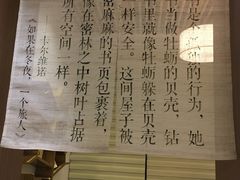 是个孤独的行为，她
当做牡蛎的贝壳，钻
书里就像牡蛎躲在贝壳
样安全。这间屋子被
密麻麻的书页包裹着，
像在密林之中树叶占据
所有空间一样。
——卡尔维诺
《如果在冬夜，
一个旅人》